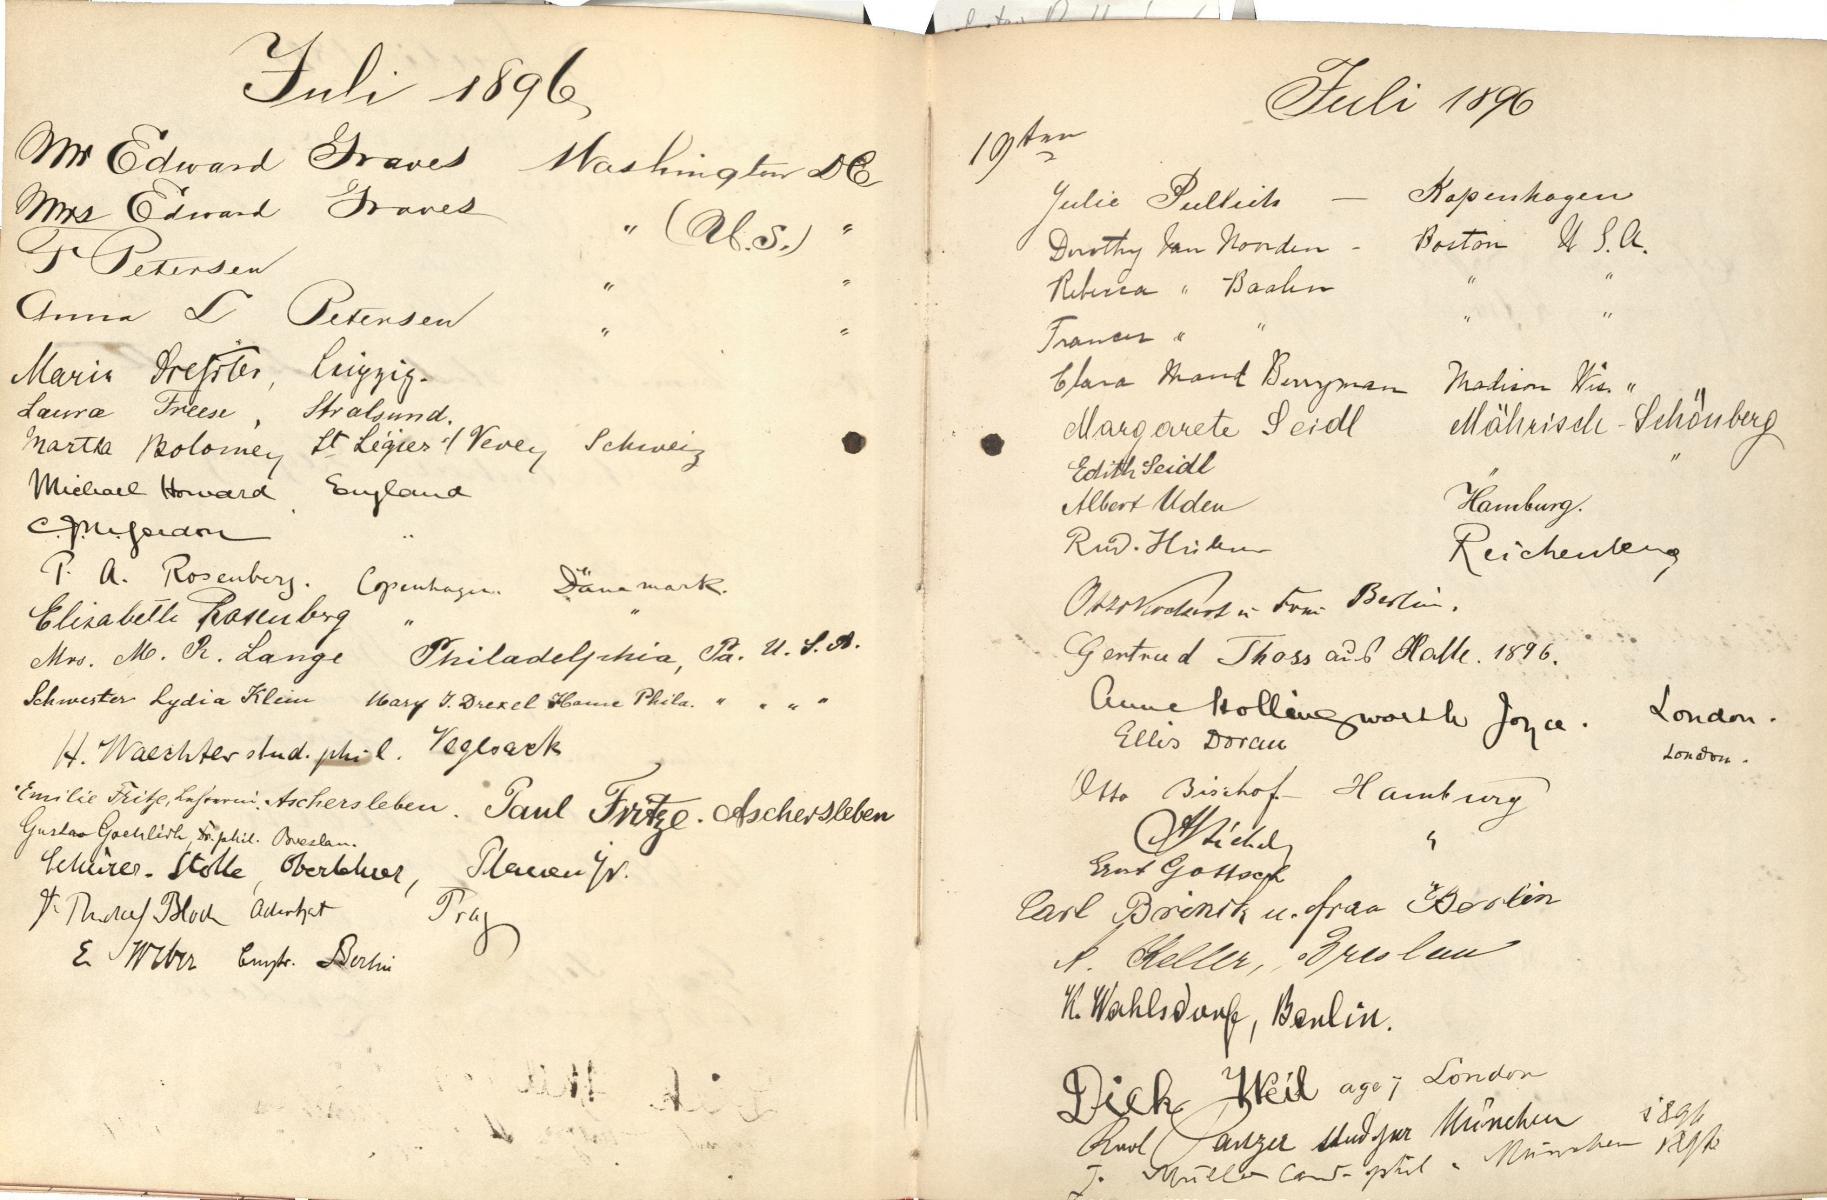 Juli 1896
Mr Edward Graves Washington DC
Mrs Edward Graves " (U.S.) "
F Petersen " "
Anna L Petersen " "
Maria Dreßler, Leipzig.
Laura Freese, Stralsund.
Martha Bolomey St Légier s/ Vevey Schweiz
Michael Howard England
C. J. M. Gordon "
P. A. Rosenberg. Copenhagen. Dänemark.
Elizabeth Rosenberg " "
Mrs. M. R. Lange Philadelphia, Pa. U. S. A.
Schwester Lydia Klein Mary J. Drexel Home Phila. " " " "
H. Waechter stud. phil. Vegesack
Emilie Fritze, Aschersleben. Paul Fritze. Aschersleben
Gustav Dr. phil. Breslau.
Schürer-Stolle, Oberlehrer, Plauen i/V.
Bloch Advokat Prag
E Weber Berlin
Juli 1896
19ten
Julie — Kopenhagen
Dorothy Van Noorden - Boston U S. A.
Rebecca " Baalen " "
Frances " " " "
Clara Maud Berryman Madison Wis. "
Margarete Seidl Mährisch-Schönberg
Edith Seidl " "
Albert Uden Hamburg.
Rud. Reichenberg
Otto u Frau Berlin.
Gertrud Thoss aus Halle. 1896.
Anne Hollingworth Joyce. London.
Ellis Doran London.
Otto Bischof - Hamburg
"
Ernst Gottsch
Carl Brinck u. frau Berlin
A. Keller, Breslau
K. Wahlsdorf, Berlin.
Dick Weil age 7 London
Karl Panzer stud jur München 1896
J. Müller cand. phil. München 1896